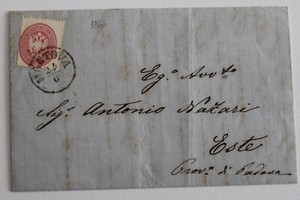 1864
MANTOVA
Eg.o Avv.to
Sig.r Antonio Nazari
Este
Prov.a di Padova